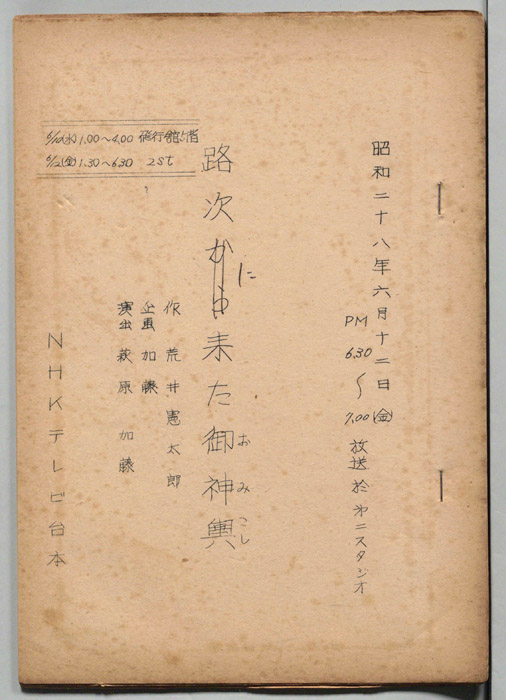 昭和二十八年六月十二日(金)
PM 6.30〜7.00 放送 於 第二スタジオ
路次から来た御神輿
に
おみこし
6/10(水) 1.00〜4.00 飛行館5階
6/12(金) 1.30〜6.30 2st
作 荒井憲太郎
企画 加藤
演出 萩原 加藤
NHKテレビ台本